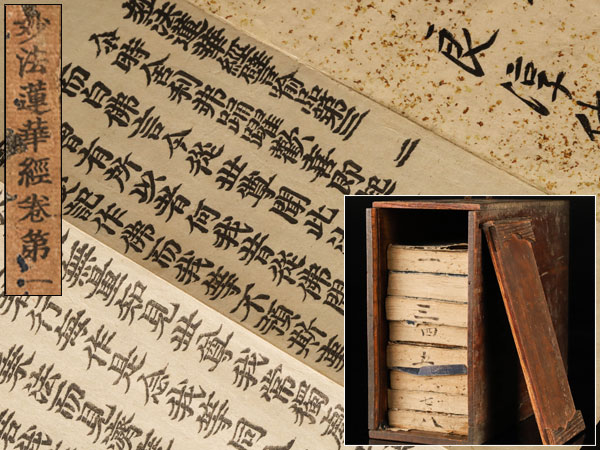 妙法蓮華經卷第一
良淳
妙法蓮華經譬喻品第三
二
尒時舍利弗踊躍歡喜即起
而白佛言今從世尊聞此
曾有所以者何我昔從佛聞
記作佛而我等不預斯事
無量知見世尊我常獨處
若行每作是念我等同
乗法而見濟度
三
四